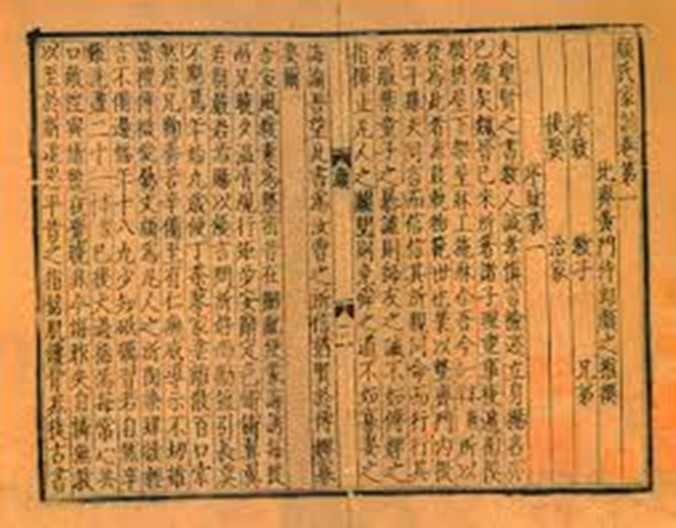 顏氏家訓卷第一
北齊黃門侍郎顏之推撰
序致 教子 兄弟
後娶 治家
序致第一
夫聖賢之書教人誠孝慎言檢迹立身揚名亦
已備矣魏晉已來所著諸子理重事複遞相
屋下架屋牀上施牀今所以
復為此者非敢軌物範世也業以整齊門內提
撕子孫夫同言而信信其所親同命而行行其
所服禁童子之暴謔則師友之誡不如傅婢之
指揮止凡人之鬬鬩則堯舜之道不如寡妻之
誨諭吾望此書為汝曹之所信猶賢於傅婢寡
妻爾
吾家風教素為整密昔在齠齔便蒙誨誘每從
兩兄曉夕溫凊規行矩步安辭定色鏘鏘翼翼
若朝嚴君焉賜以優言問所好尚勵短引長莫
不懇篤年始九歲便丁荼蓼家塗離散百口索
然慈兄鞠養苦辛備至有仁無威導示不切雖
讀禮傳微愛屬文頗為凡人之所陶染肆欲輕
言不備邊幅年十八九少知砥礪習若自然卒
難洗盪二十已後大過稀焉每常心共
口敵性與情競夜覺曉非今悔昨失自憐無教
以至於斯追思平昔之指銘肌鏤骨非徒古書